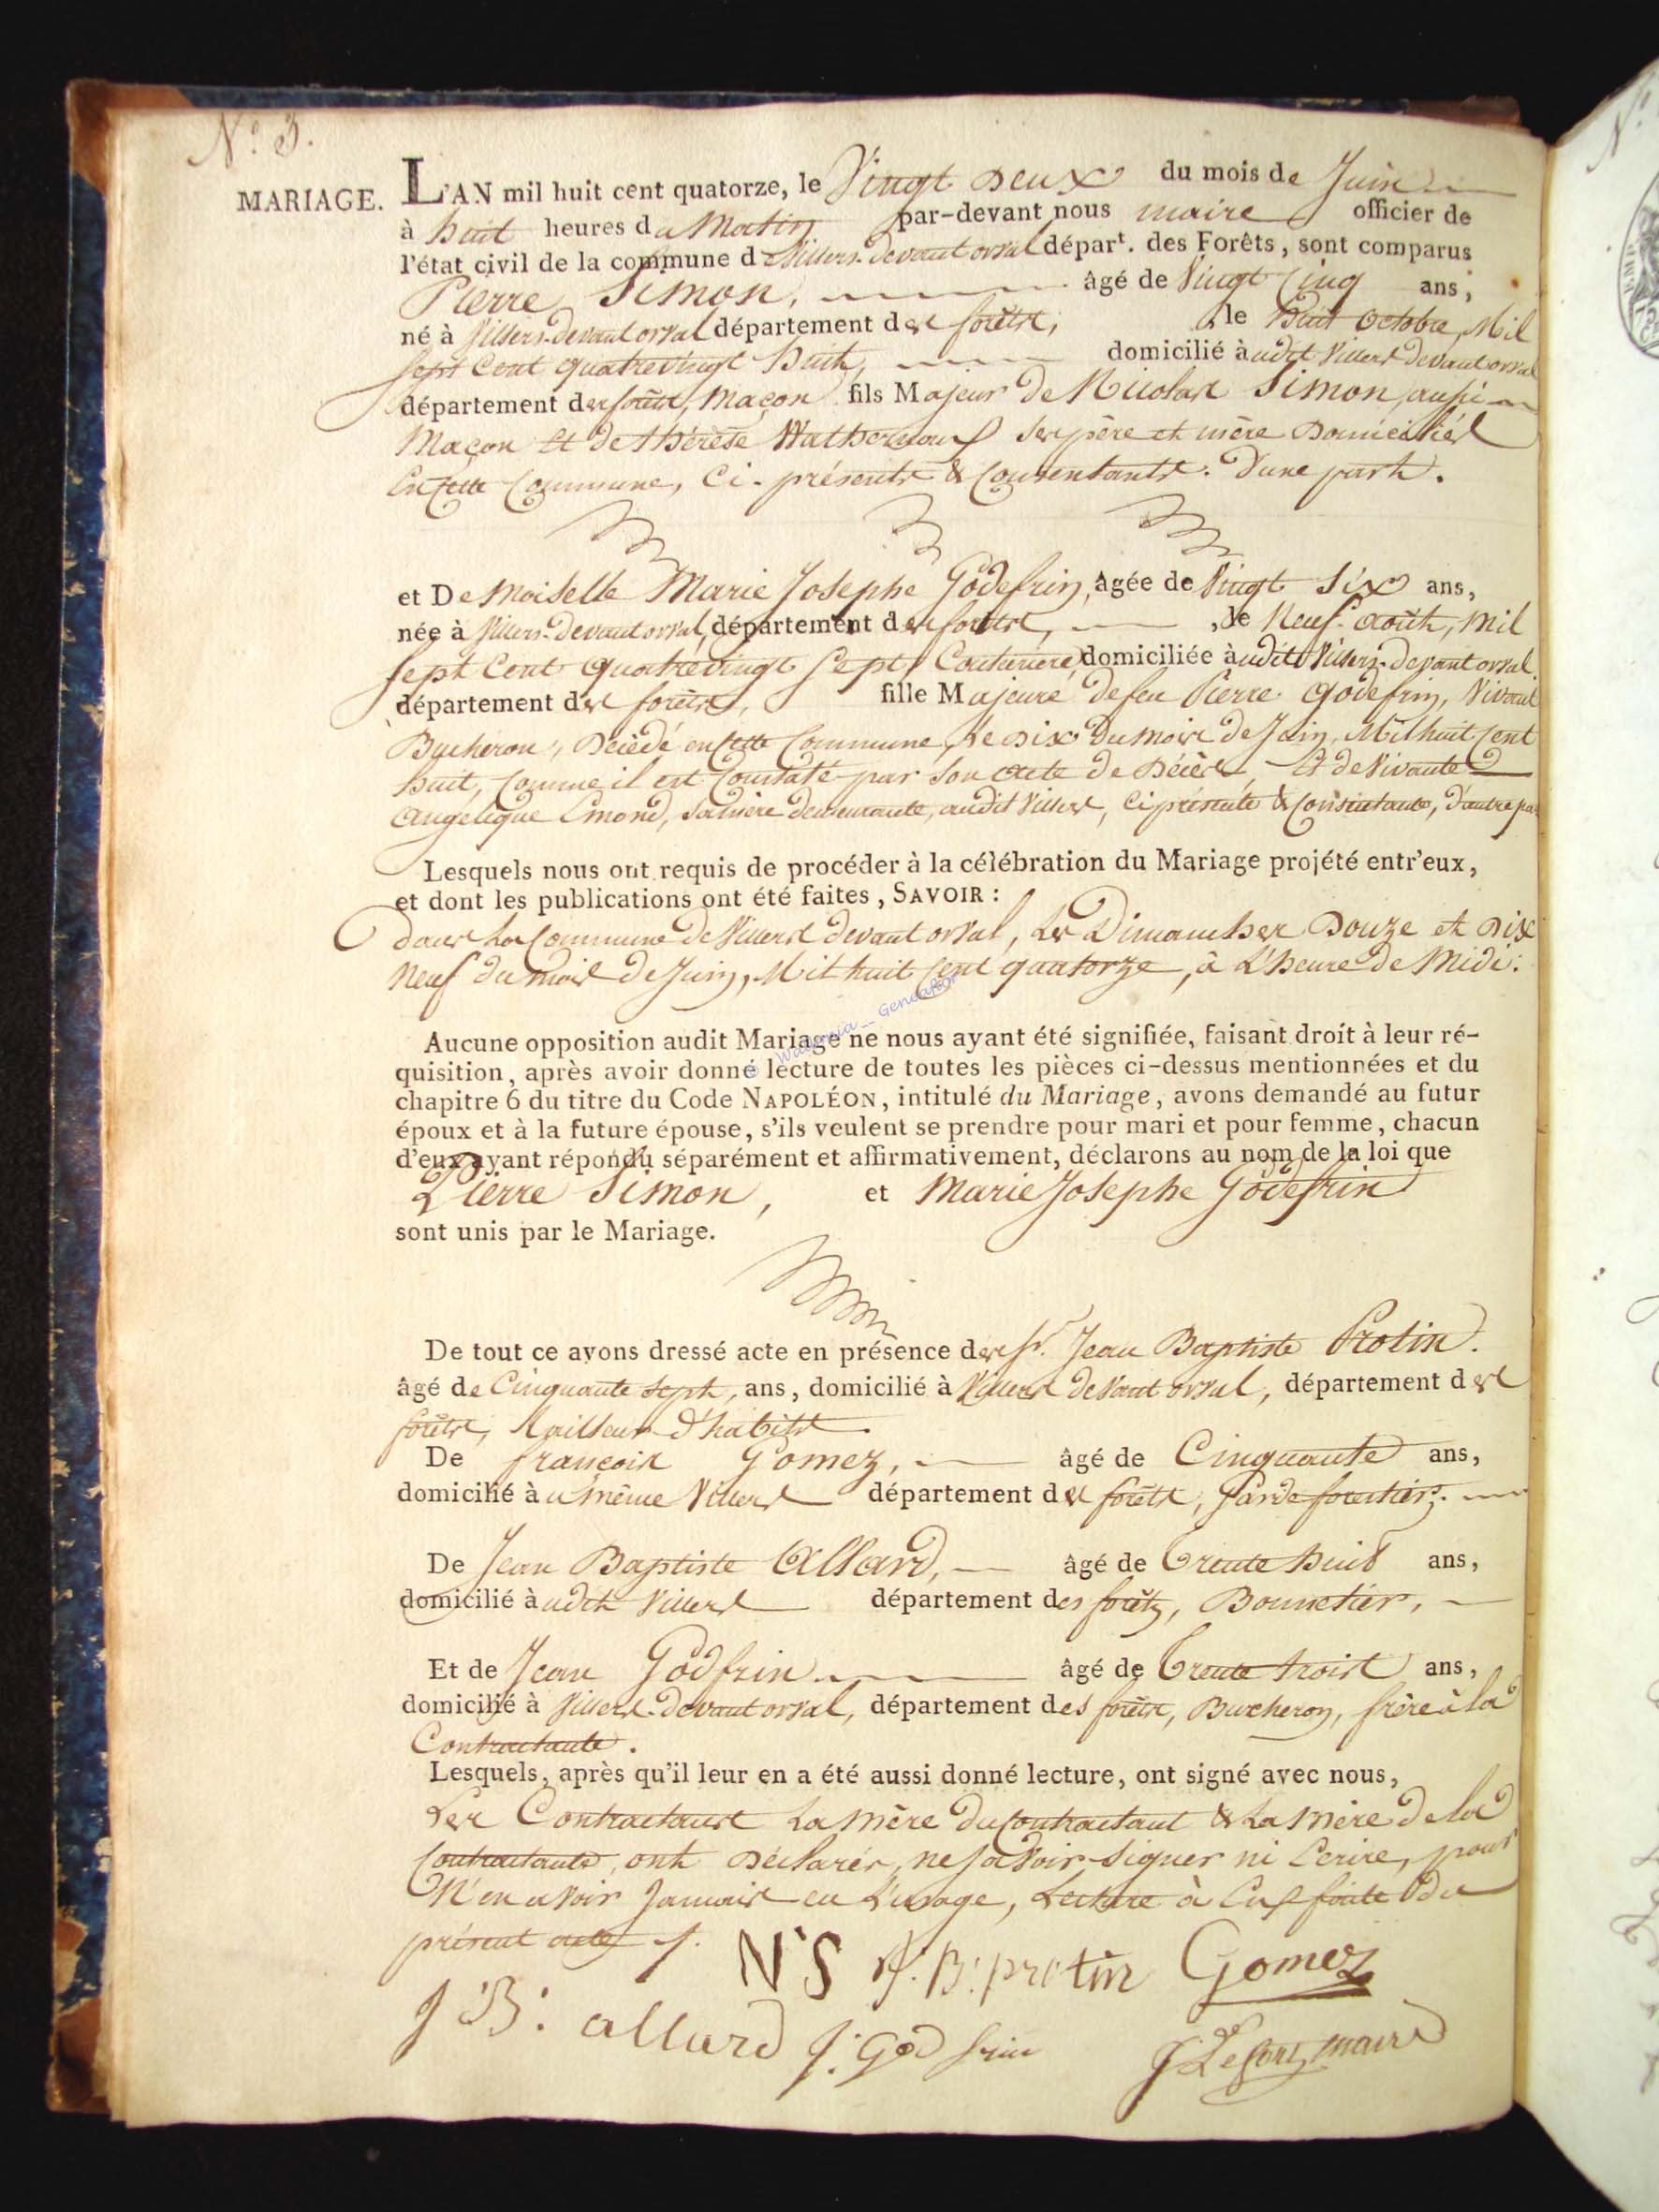 N.º 3.
MARIAGE.
L'AN mil huit cent quatorze, le Vingt Deux du mois de Juin
à huit heures du Matin par-devant nous maire officier de
l'état civil de la commune de Villers-devant orval départ. des Forêts, sont comparus
Pierre Simon, âgé de Vingt Cinq ans,
né à Villers-devant orval département des forêts, le huit Octobre, Mil
Sept Cent quatrevingt huit, domicilié àudit Villers devant orval
département des forêts, Maçon fils Majeur de Nicolas Simon, aussi
Maçon Et de thérèse ses père et mère Domiciliés
En cette Commune, Ci-présents & Consentants. D'une part.
et Demoiselle Marie Josephe Godefrin, âgée de Vingt Six ans,
née à Villers-devant orval, département des forêts, le Neuf aoùt, Mil
Sept Cent quatrevingt Sept, Couturière, domiciliée àudit Villers-devant orval.
département des forêts, fille Majeure de feu Pierre Godefrin, Vivant
Bucheron, Décédé en cette Commune, Le Dix Du mois de Juin, Mil huit Cent
huit, Comme il est Constaté par Son acte de Décès, Et de Vivante
Angélique Emond, Sa mère demeurante, audit Villers, Ci présente & Consentante, D'autre pa
Lesquels nous ont requis de procéder à la célébration du Mariage projété entr'eux,
et dont les publications ont été faites, SAVOIR :
dans La Commune de Villers devant orval, Les Dimanches Douze et Dix
Neuf du mois de Juin, Mil huit Cent quatorze, à L'heure de Midi.
Aucune opposition audit Mariage ne nous ayant été signifiée, faisant droit à leur ré-
quisition, après avoir donné lecture de toutes les pièces ci-dessus mentionnées et du
chapitre 6 du titre du Code NAPOLÉON, intitulé du Mariage, avons demandé au futur
époux et à la future épouse, s'ils veulent se prendre pour mari et pour femme, chacun
d'eux ayant répondu séparément et affirmativement, déclarons au nom de la loi que
Pierre Simon, et Marie Josephe Godefrin
sont unis par le Mariage.
De tout ce avons dressé acte en présence des Sr. Jean Baptiste Protin.
âgé de Cinquante Sept, ans, domicilié à Villers devant orval, département des
forêts, tailleur d'habits
De françois Gomez, âgé de Cinquante ans,
domicilié àu même Villers département des forêts, Garde forestier.
De Jean Baptiste Allard, âgé de Trente huit ans,
domicilié àudit Villers département des forêts, Bonnetier,
Et de Jean Godfrin âgé de Trente trois ans,
domicilié à Villers-devant orval, département des forêts, Bucheron, frère à la
Contractante.
Lesquels, après qu'il leur en a été aussi donné lecture, ont signé avec nous,
Les Contractants La mère du Contractant & La mère de la
Contractante, ont Déclarés, ne Savoir Signer ni Ecrire, pour
N'en avoir Jamais eu L'usage, Lecture à Eux faite du
présent acte.
N S J. B. protin Gomez
J B: allard J: God frin J Lefort, maire